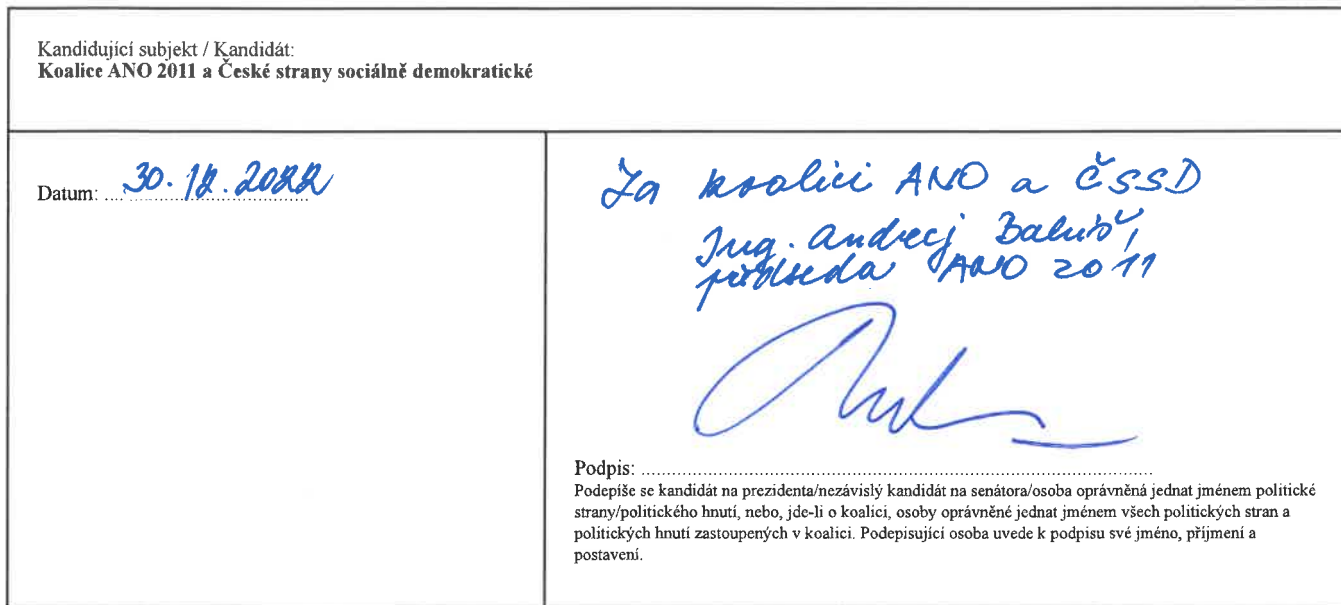 Kandidující subjekt / Kandidát:
Koalice ANO 2011 a České strany sociálně demokratické
Datum: 30.12.2022
Za koalici ANO a ČSSD
Ing. Andrej Babiš,
předseda ANO 2011
Podpis:
Podepíše se kandidát na prezidenta/nezávislý kandidát na senátora/osoba oprávněná jednat jménem politické
strany/politického hnutí, nebo, jde-li o koalici, osoby oprávněné jednat jménem všech politických stran a
politických hnutí zastoupených v koalici. Podepisující osoba uvede k podpisu své jméno, příjmení a
postavení.